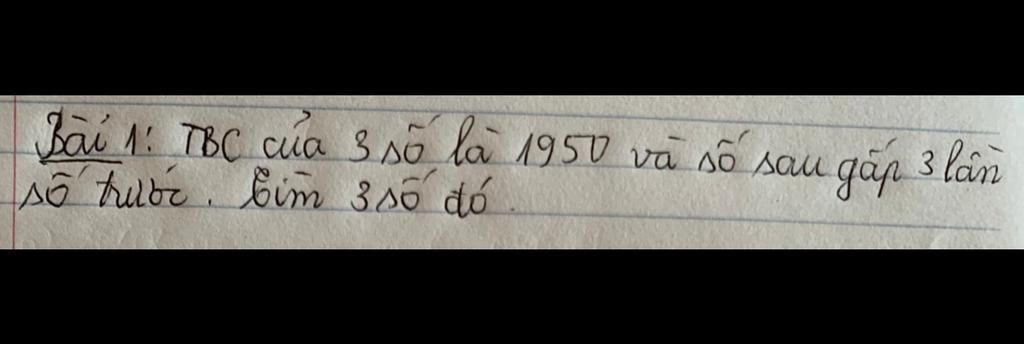 Bài 1: TBC của 3 số là 1950 và số sau gấp 3 lần
số trước. Tìm 3 số đó.